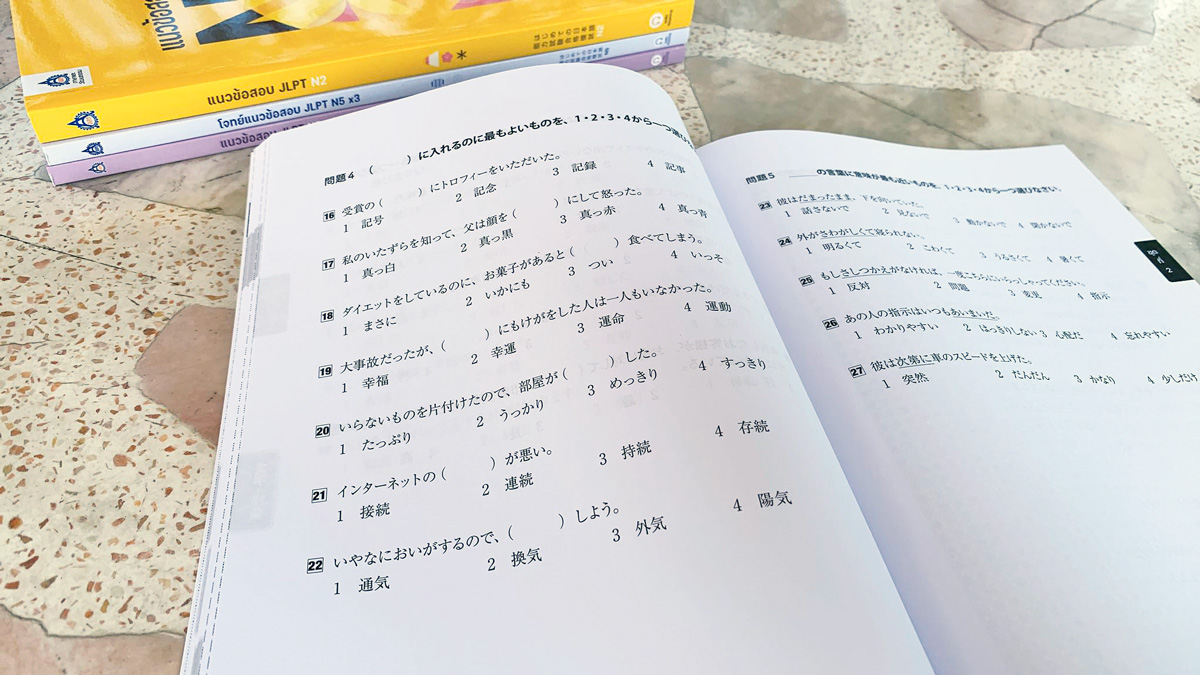 แนวข้อสอบ JLPT N2
โจทย์แนวข้อสอบ JLPT N5 x3
แนวข้อสอบ JLPT
問題4 (　　) に入れるのに最もよいものを、1・2・3・4から一つ選び
16 受賞の(　　)にトロフィーをいただいた。
1 記号 2 記念 3 記録 4 記事
17 私のいたずらを知って、父は顔を(　　)にして怒った。
1 真っ白 2 真っ黒 3 真っ赤 4 真っ青
18 ダイエットをしているのに、お菓子があると(　　)食べてしまう。
1 まさに 2 いかにも 3 つい 4 いっそ
19 大事故だったが、(　　)にもけがをした人は一人もいなかった。
1 幸福 2 幸運 3 運命 4 運動
20 いらないものを片付けたので、部屋が(　　)した。
1 たっぷり 2 うっかり 3 めっきり 4 すっきり
21 インターネットの(　　)が悪い。
1 接続 2 連続 3 持続 4 存続
22 いやなにおいがするので、(　　)しよう。
1 通気 2 換気 3 外気 4 陽気
問題5 ＿＿＿の言葉に意味が最も近いものを、1・2・3・4から一つ選びなさい。
23 彼はだまったまま、下を向いていた。
1 話さないで 2 見ないで 3 動かないで 4 聞かないで
24 外がさわがしくて寝られない。
1 明るくて 2 こわくて 3 うるさくて 4 暑くて
25 もしさしつかえがなければ、一度こちらにいらっしゃってください。
1 反対 2 問題 3 変更 4 指示
26 あの人の指示はいつもあいまいだ。
1 わかりやすい 2 はっきりしない 3 心配だ 4 忘れやすい
27 彼は次第に車のスピードを上げた。
1 突然 2 だんだん 3 かなり 4 少しだけ
ชุดที่ 2